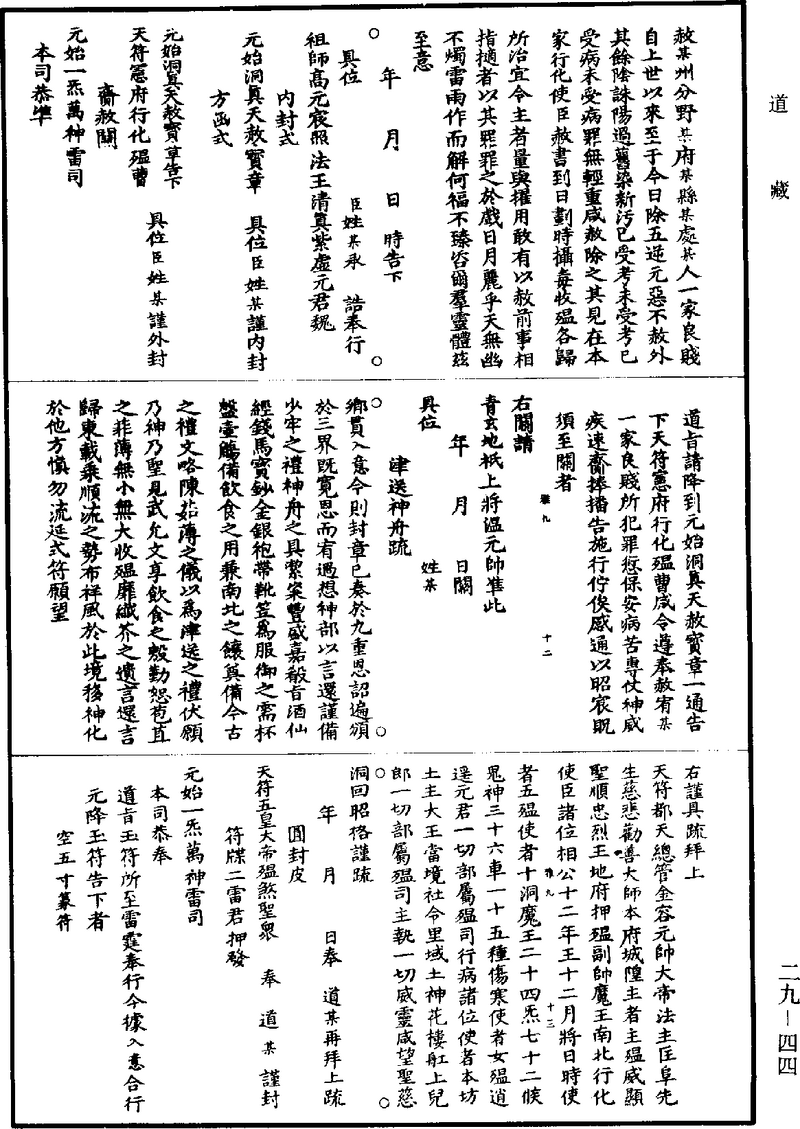 道藏
赦某州分野某府某縣某處某人一家良賤
自上世以來至于今日除五逆元惡不赦外
其餘陰誅陽過舊染新污已受考未受考已
受病未受病罪無輕重咸赦除之其見在本
家行化使臣赦書到日劃時攝毒收瘟各歸
所治宜令主者量與權用敢有以赦前事相
指擿者以其罪罪之於戲日月麗乎天無幽
不燭雷雨作而解何福不臻咨爾羣靈體兹
至意
年 月 日 時告下
具位 臣姓某承 誥奉行
祖師高元宸照法王清真紫虛元君魏
內封式
元始洞真天赦寶章 具位臣姓某謹內封
方函式
元始洞真天赦寶章告下
天符憲府行化瘟曹 具位臣姓某謹外封
齋赦關
元始一炁萬神雷司
本司恭準
道旨請降到元始洞真天赦寶章一通告
下天符憲府行化瘟曹咸令遵奉赦宥某
一家良賤所犯罪愆保安病苦專仗神威
疾速齎捧播告施行佇俟感通以昭宸貺
須至關者
雜九 十二
右關請
青玄地祇上將溫元帥準此
年 月 日關
具位 姓某
津送神舟疏
鄉貫入意今則封章已奏於九重恩詔遍頒
於三界既寬恩而宥過想神部以言還謹備
少牢之禮神舟之具絜粢豐盛嘉殽旨酒仙
經錢馬寶鈔金銀袍帶靴笠爲服御之需杯
盤壺觴備飲食之用兼南北之饌奠備今古
之禮文略陳菲薄之儀以爲津送之禮伏願
乃神乃聖見武允文享飲食之殷勤恕苞苴
之菲薄無小無大收瘟靡纖芥之遺言還言
歸東載乘順流之勢布祥風於此境移神化
於他方慎勿流延式符願望
右謹具疏拜上
天符都天總管金容元帥大帝法主匡阜先
生慈悲勸善大師本府城隍主者主瘟威顯
聖順忠烈王地府押瘟副帥魔王南北行化
使臣諸位相公十二年王十二月將日時使
雜九 十三
者五瘟使者十洞魔王二十四炁七十二候
鬼神三十六車一十五種傷寒使者女瘟逍
遥元君一切部屬瘟司行病諸位使者本坊
土主大王當境社令里域土神花樓舡上兒
郎一切部屬瘟司主執一切威靈咸望聖慈
洞回昭格謹疏
年 月 日奉 道某再拜上疏
圓封皮
天符五皇大帝瘟煞聖衆 奉 道 某 謹封
符牒二雷君押發
元始一炁萬神雷司
本司恭奉
道旨玉符所至雷霆奉行今據入意合行
元降玉符告下者
空五寸篆符
二九－四四